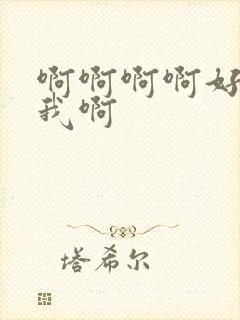 啊啊啊啊好
我啊
塔希尔